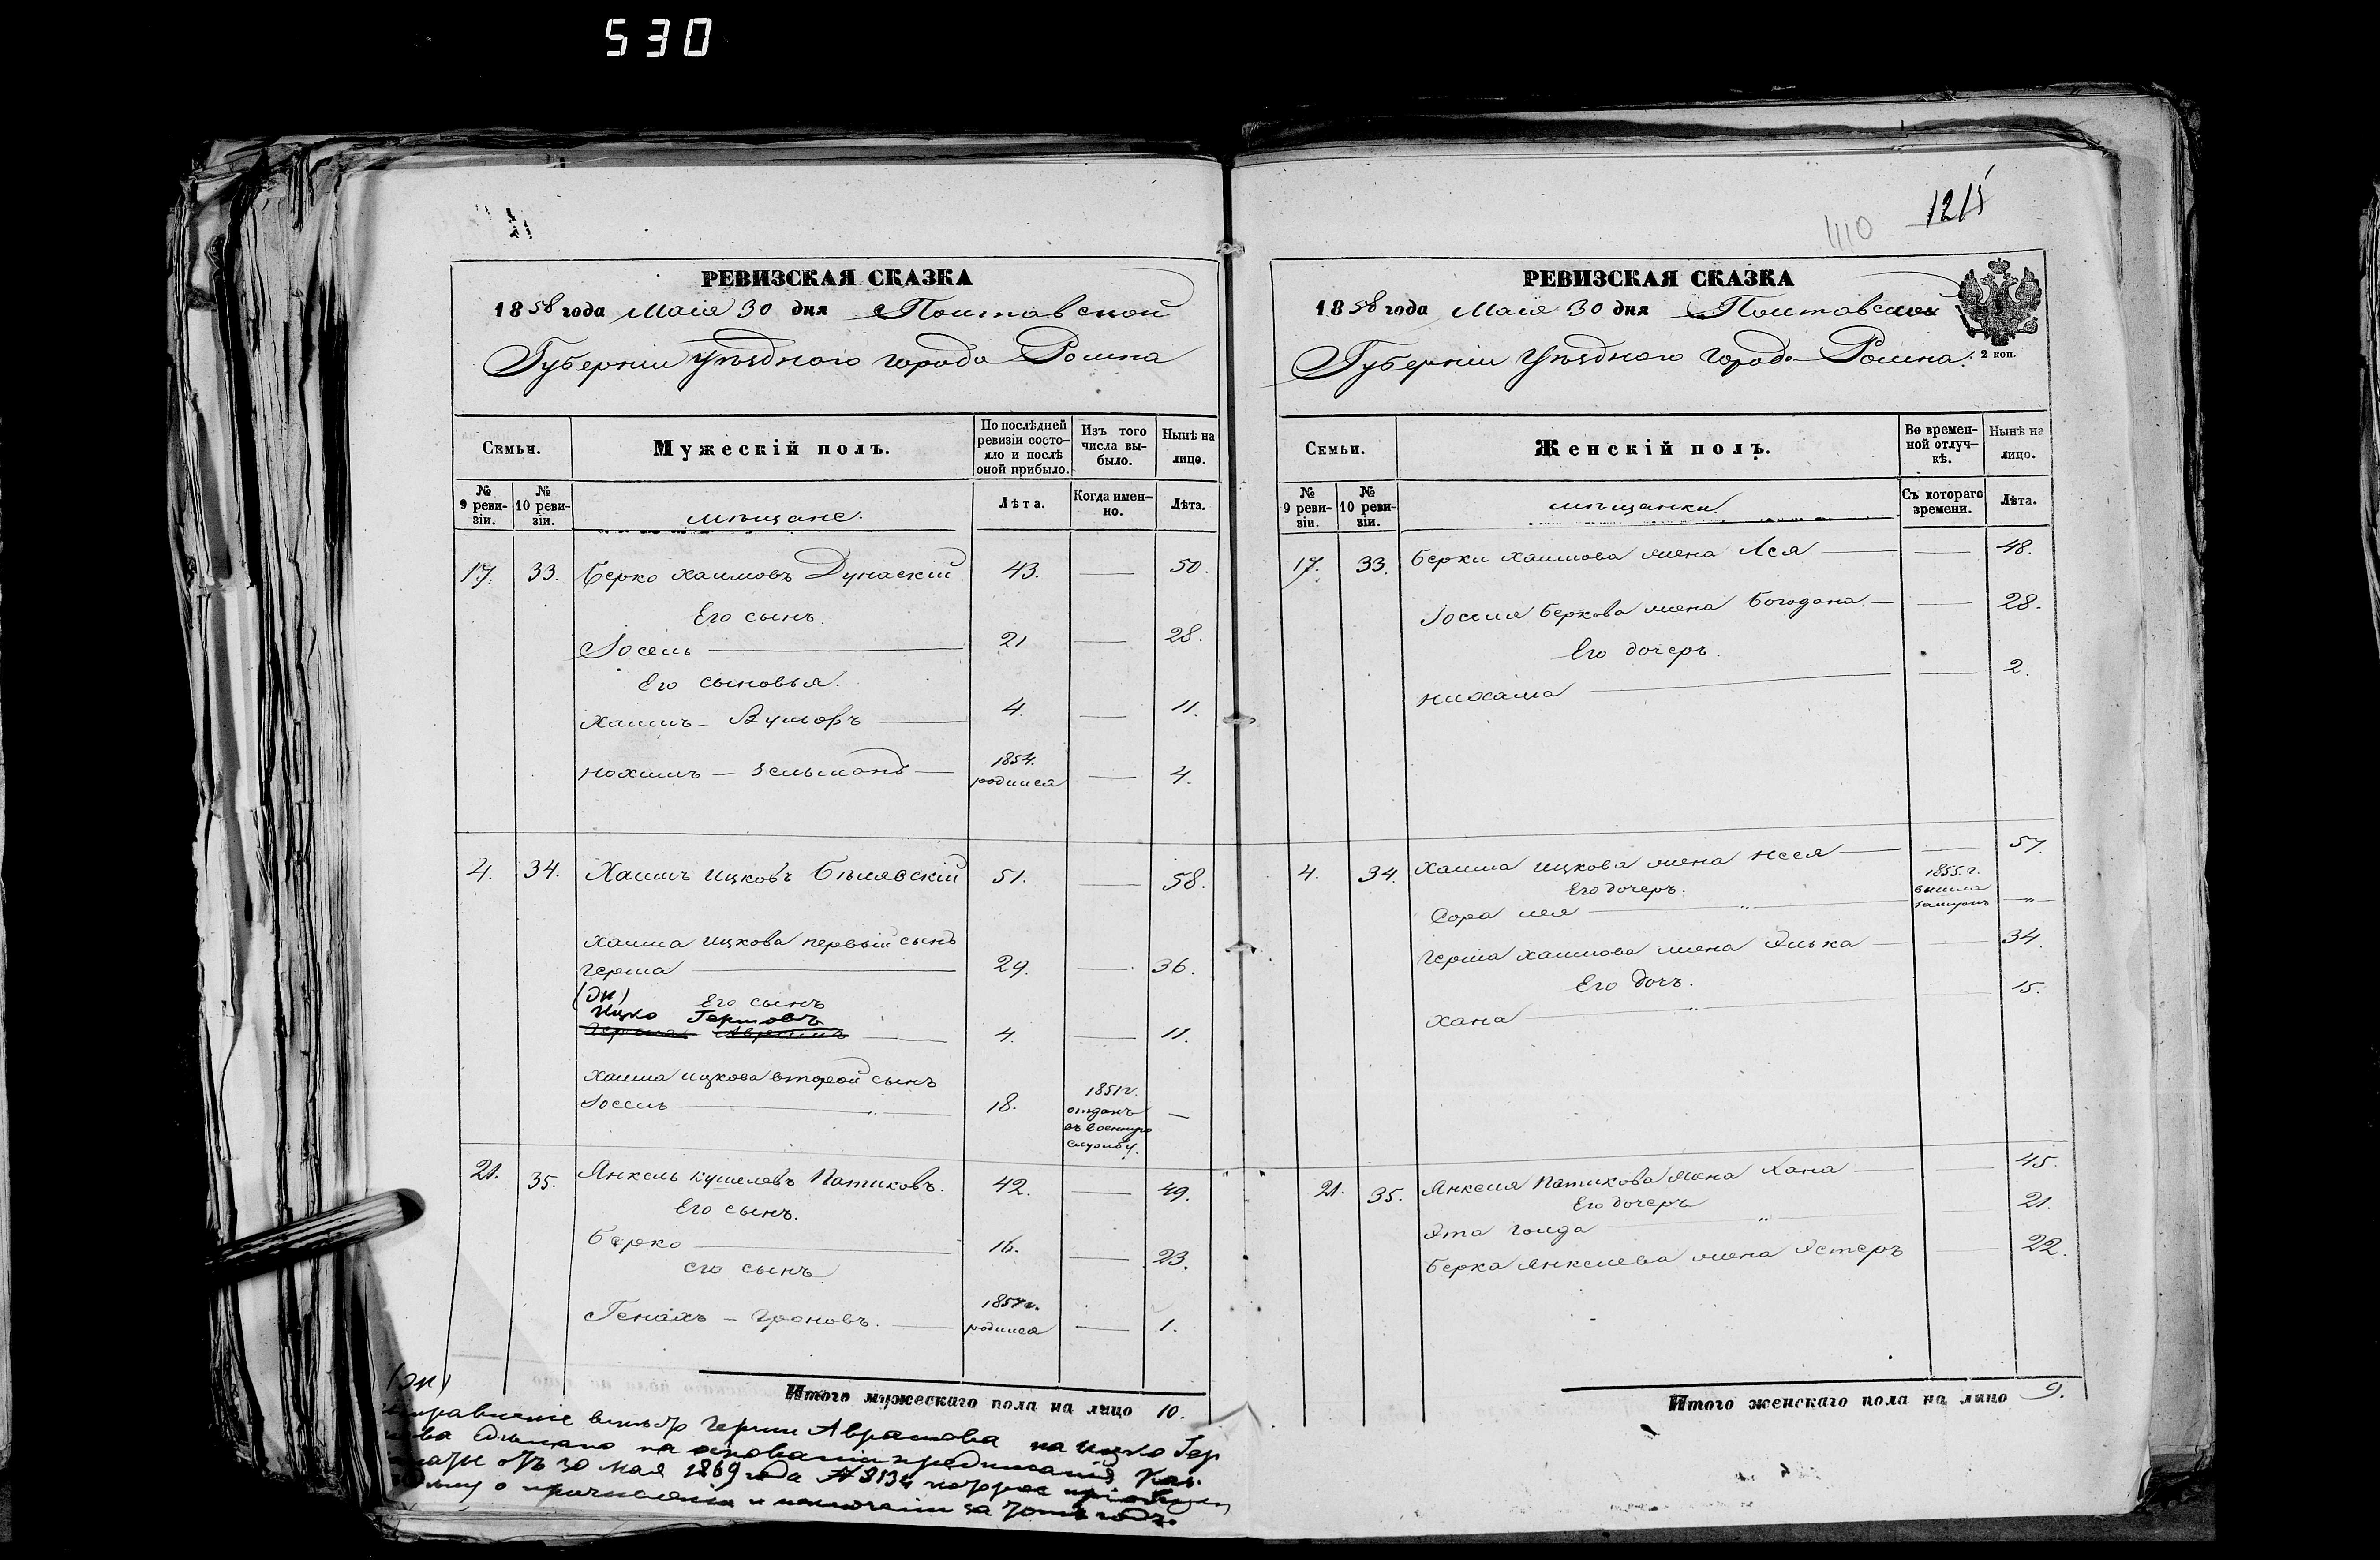 530
1215
1110
РЕВИЗСКАЯ СКАЗКА
1858 года Маія 30 дня Полтавской
Губерніи Уѣзднаго города Ромна
Семьи.
Мужескій полъ.
По послѣдней ревизіи состояло и послѣ оной прибыло.
Изъ того числа выбыло.
Нынѣ на лицо.
№ 9 ревизіи.
№ 10 ревизіи.
мѣщане.
Лѣта.
Когда именно.
Лѣта.
17. 33. Берко Хаимовъ Дунаскій 43. — 50.
Его сынъ.
Іосель — 21 — 28.
Его сыновья.
Хаимъ — Вульфъ — 4. — 11.
Нохимъ — Зельманъ — 1854. родился — 4.
4. 34. Хаимъ Ицковъ Бѣлявскій 51. — 58.
Хаима Ицкова первый сынъ
Герша — 29. — 36.
(эи) Его сынъ
Ицко Гершовъ
Герша Аврамъ — 4. — 11.
Хаима Ицкова второй сынъ
Іосель — 18. 1851 г. отданъ въ военную службу. —
21. 35. Янкель Кушелевъ Патиковъ. 42. — 49.
Его сынъ.
Берко — 16. — 23.
его сынъ
Генахъ — Гроновъ. — 1857 г. родился — 1.
Итого мужескаго пола на лицо 10.
(эи)
исправленіе вмѣсто Герши Аврамова на Ицко Гер
шова сдѣлано на основаніи предписанія Каз.
палаты отъ 30 мая 1869 года № 8134
о причисленіи и исключеніи за годъ.
РЕВИЗСКАЯ СКАЗКА
1858 года Маія 30 дня Полтавской
Губерніи Уѣзднаго города Ромна.
2 коп.
Семьи.
Женскій полъ.
Во временной отлучкѣ.
Нынѣ на лицо.
№ 9 ревизіи.
№ 10 ревизіи.
мѣщанки.
Съ котораго времени.
Лѣта.
17. 33. Берки Хаимова жена Лея — — 48.
Іоселя Беркова жена Богодана — — 28.
Его дочерь.
Нихама — — 2.
4. 34. Хаима Ицкова жена Неся — — 57.
Его дочерь.
Сора Лея — 1855. г. вышла замужъ —
Герша Хаимова жена Элька — — 34.
Его дочь.
Хана — 15.
21. 35. Янкеля Патикова жена Хана — — 45.
Его дочерь
Эта Голда — 21.
Берка Янкелева жена Эстеръ — 22.
Итого женскаго пола на лицо 9.